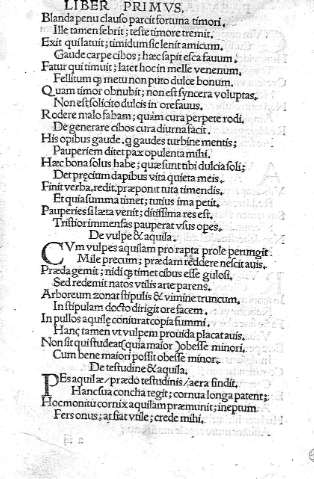 LIBER PRIMVS.
Blanda penu clauso parcit fortuna timori,
Ille tamen febrit; teste timore tremit.
Exit qui latuit; timidum sic lenit amicum.
Gaude carpe cibos; hæc sapit esca fauum.
Fatur qui timuit; latet hoc in melle venenum,
Fellitum q; metu non puto dulce bonum.
Quam timor obnubit; non est syncera voluptas.
Non est solicito dulcis in ore fauus.
Rodere malo fabam; quàm cura perpete rodi.
De generare cibos cura diurna facit.
His opibus gaude. q gaudes turbine mentis;
Pauperiem ditet pax opulenta mihi.
Hæc bona solus habe; quæ sunt tibi dulcia soli;
Det precium dapibus vita quieta meis.
Finit verba. redit. præponit tuta timendis.
Et quia summa timet; tutius ima petit.
Pauperies si læta venit; ditissima res est.
Tristior immensas pauperat vsus opes.
De vulpe & aquila.
CVm vulpes aquilam pro rapta prole perurgit
Mile precum; prædam reddere nescit auis.
Præda gemit; nidi q; timet cibus esse gulosi.
Sed redemit natos vtilis arte parens.
Arboreum zonat stipulis & vimine truncum.
In stipulam docto dirigit ore facem.
In pullos aquilæ coniurat copia fummi.
Hanc tamen vt vulpem prouida placat auis.
Non sit qui studeat (quia maior) obesse minori.
Cum bene maiori possit obesse minor.
De testudine & aquila.
PEs aquilæ / prædo testudinis / aera findit.
Hanc sua concha tegit; cornua longa patent;
Hoc monitu cornix aquilam præmunit; ineptum
Fers onus; at fiat vtile; crede mihi.